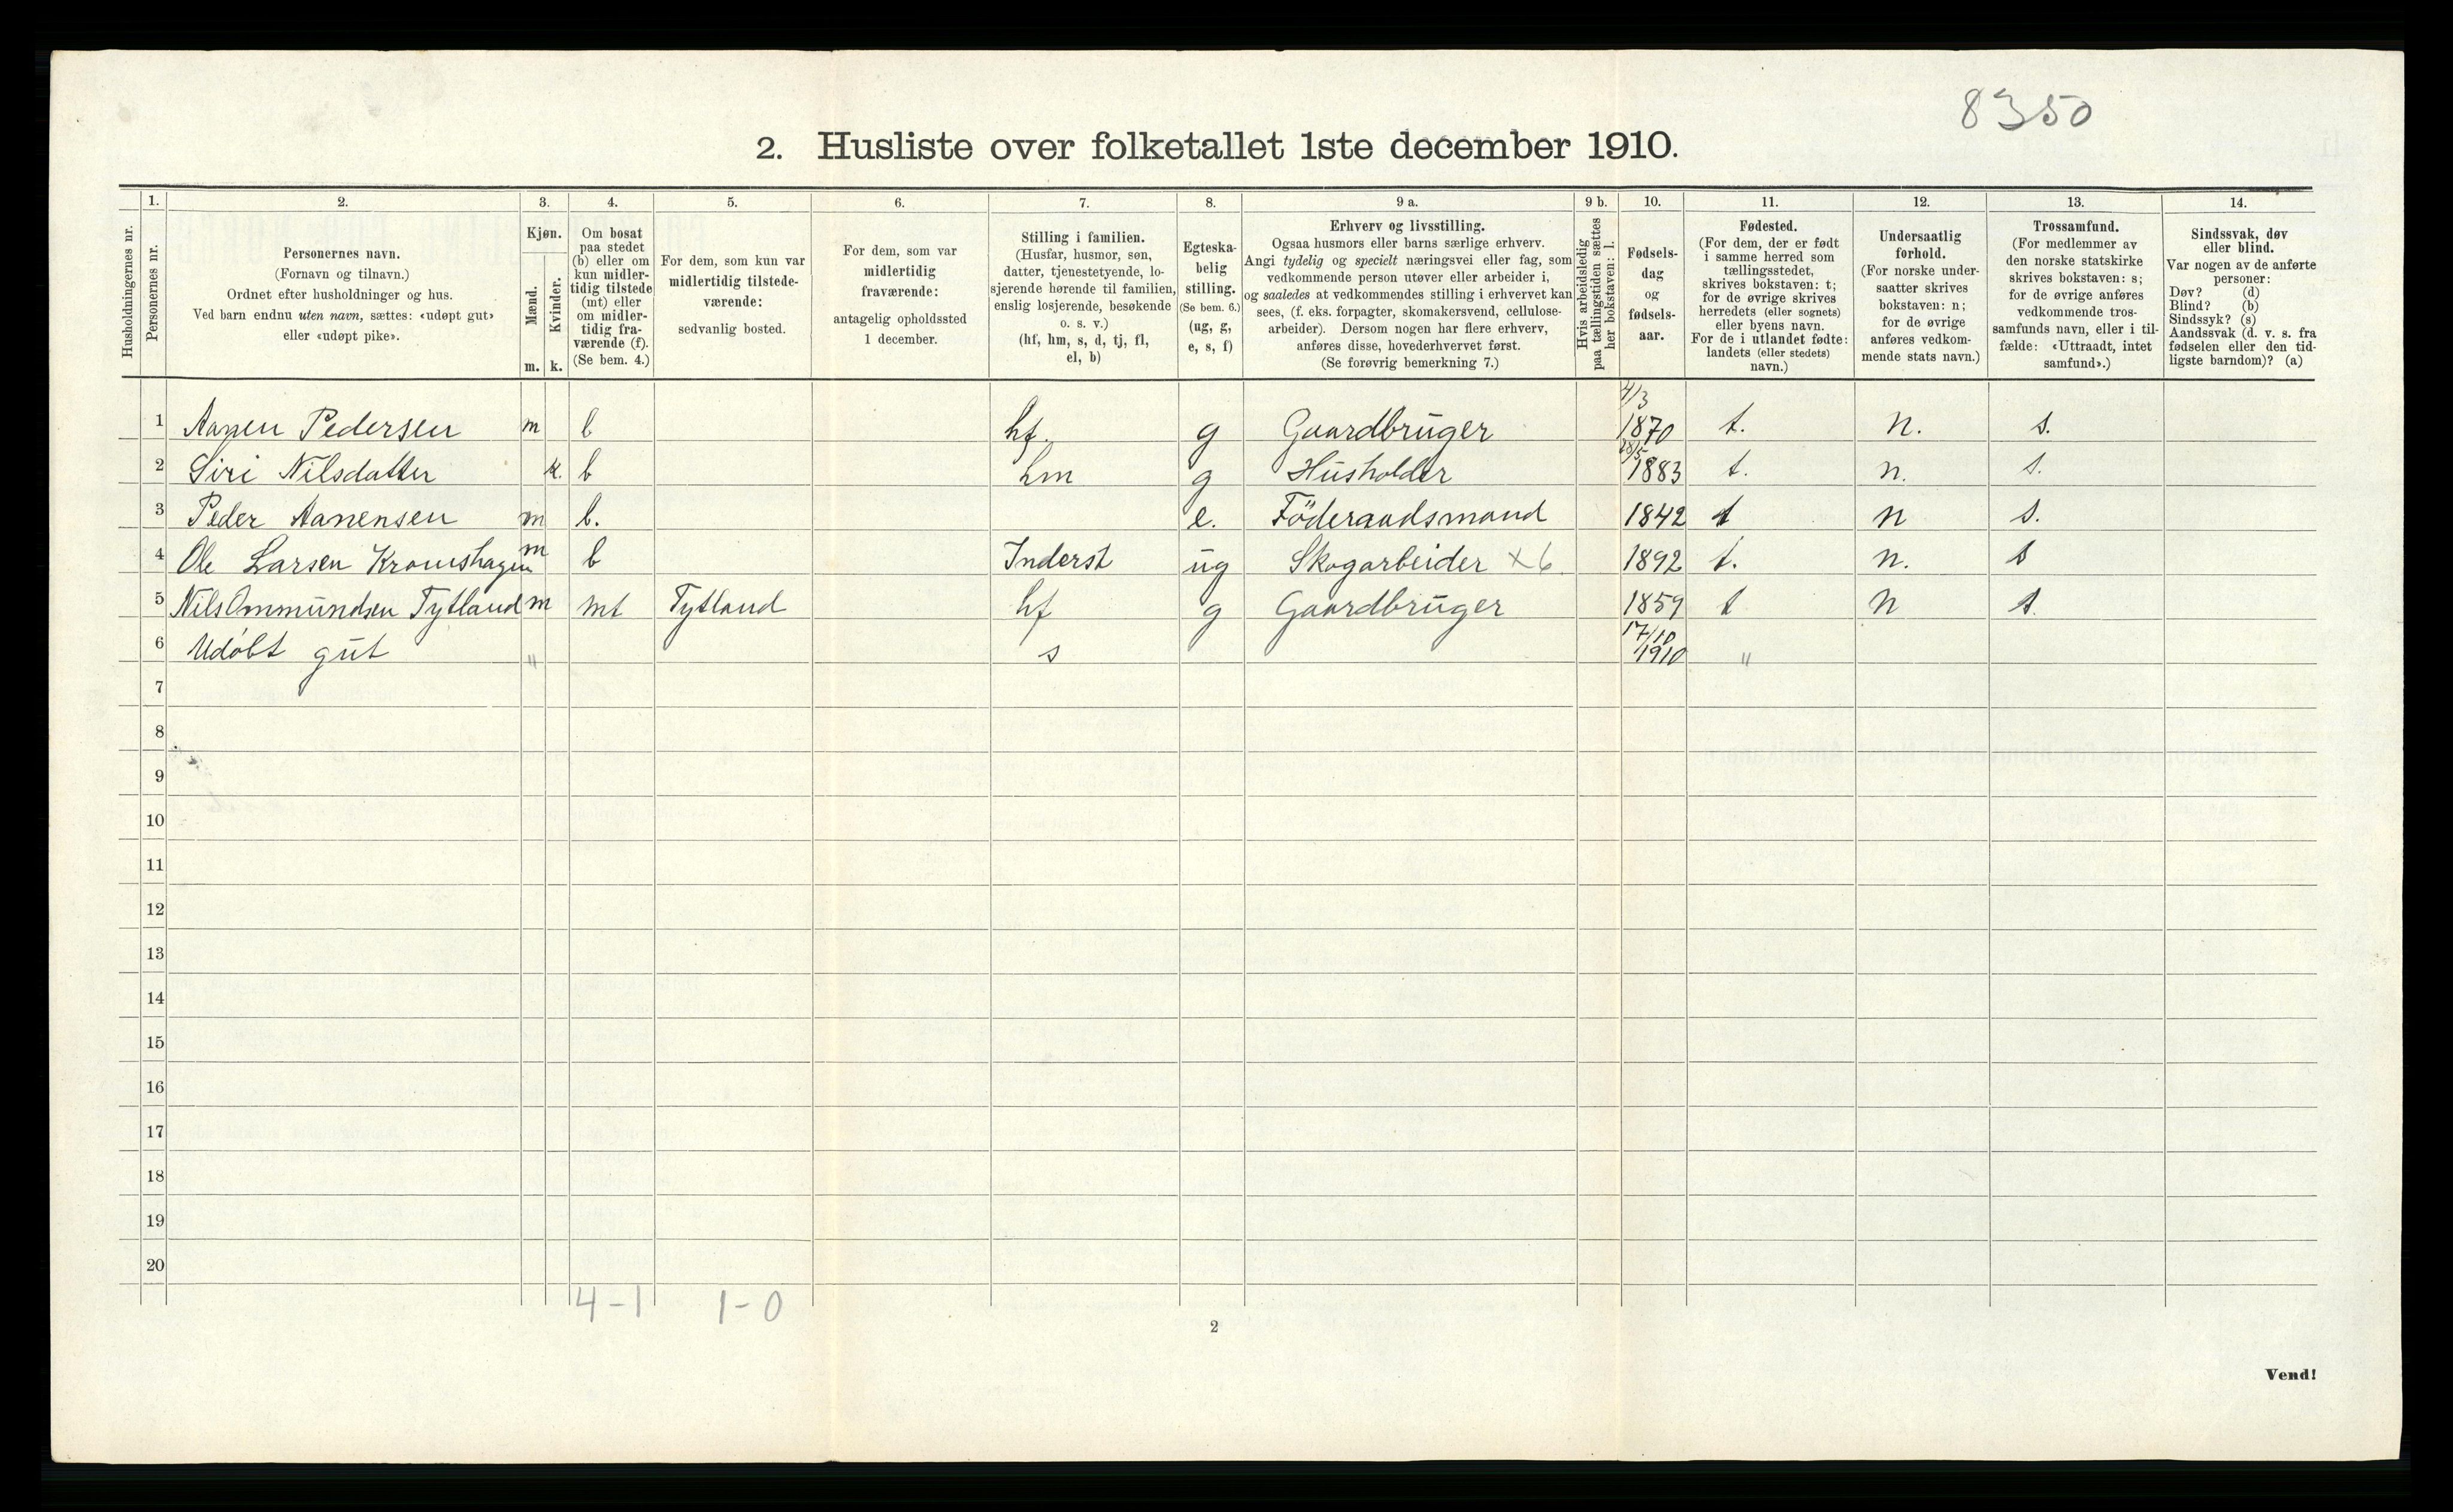 8350
2. Husliste over folketallet 1ste december 1910.
Husholdningernes nr.
1.
Personernes nr.
2.
Personernes navn.
(Fornavn og tilnavn.)
Ordnet efter husholdninger og hus.
Ved barn endnu uten navn, sættes: «udøpt gut»
eller «udøpt pike».
3.
Kjøn.
Mænd.
Kvinder.
m. k.
4.
Om bosat
paa stedet
(b) eller om
kun midler-
tidig tilstede
(mt) eller
om midler-
tidig fra-
værende (f).
(Se bem. 4.)
5.
For dem, som kun var
midlertidig tilstede-
værende:
sedvanlig bosted.
6.
For dem, som var
midlertidig
fraværende:
antagelig opholdssted
1 december.
7.
Stilling i familien.
(Husfar, husmor, søn,
datter, tjenestetyende, lo-
sjerende hørende til familien,
enslig losjerende, besøkende
o. s. v.)
(hf, hm, s, d, tj, fl,
el, b)
8.
Egteska-
belig
stilling.
(Se bem. 6.)
(ug, g,
e, s, f)
9 a.
Erhverv og livsstilling.
Ogsaa husmors eller barns særlige erhverv.
Angi tydelig og specielt næringsvei eller fag, som
vedkommende person utøver eller arbeider i,
og saaledes at vedkommendes stilling i erhvervet kan
sees, (f. eks. forpagter, skomakersvend, cellulose-
arbeider). Dersom nogen har flere erhverv,
anføres disse, hovederhvervet først.
(Se forøvrig bemerkning 7.)
9 b.
Hvis arbeidsledig
paa tællingstiden sættes
her bokstaven: l.
10.
Fødsels-
dag
og
fødsels-
aar.
11.
Fødested.
(For dem, der er født
i samme herred som
tællingsstedet,
skrives bokstaven: t;
for de øvrige skrives
herredets (eller sognets)
eller byens navn.
For de i utlandet fødte:
landets (eller stedets)
navn.)
12.
Undersaatlig
forhold.
(For norske under-
saatter skrives
bokstaven: n;
for de øvrige
anføres vedkom-
mende stats navn.)
13.
Trossamfund.
(For medlemmer av
den norske statskirke
skrives bokstaven: s;
for de øvrige anføres
vedkommende tros-
samfunds navn, eller i til-
fælde: «Uttraadt, intet
samfund».)
14.
Sindssvak, døv
eller blind.
Var nogen av de anførte
personer:
Døv? (d)
Blind? (b)
Sindssyk? (s)
Aandssvak (d. v. s. fra
fødselen eller den tid-
ligste barndom)? (a)
1 Aanen Pedersen m b hf. g Gaardbruger 4/3 1870 t. n. s.
2 Siri Nilsdatter k. b hm g Husholder 1883 t. n. s.
3 Peder Aanensen m b. e. Föderaadsmand 1842 t n s.
4 Ole Larsen m b Inderst ug Skogarbeider x 6 1892 t. n. s
5 Nils Ommundsen Tytland m mt Tytland hf g Gaardbruger 1859 t n s.
6 Udøbt gut " s 17/10 1910 "
7
8
9
10
11
12
13
14
15
16
17
18
19
20
4-1 1-0
2
Vend!